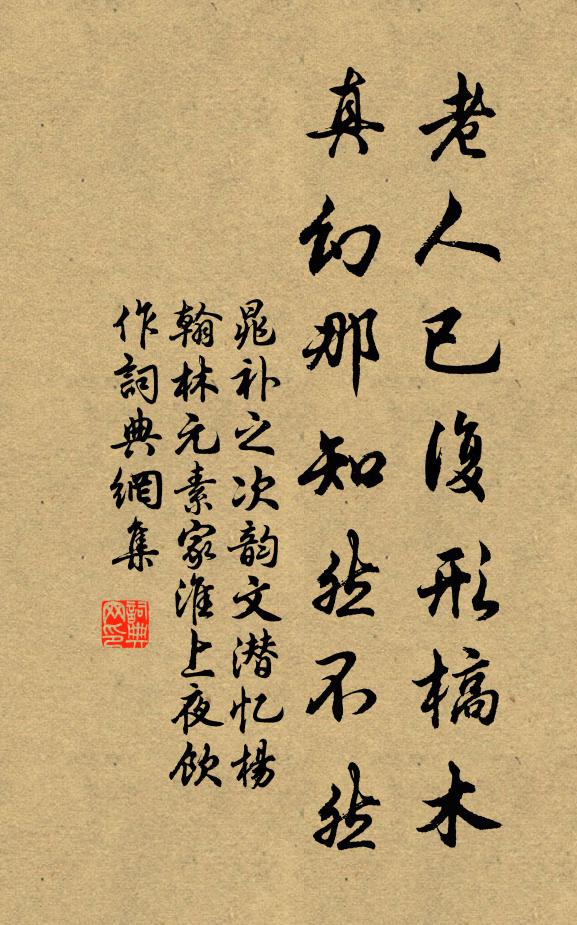 老人已復形槁木
真幻那知然不然
晁补之次韵文潜忆楊
翰林元素家淮上夜飲
作詞典網集
詞典
网印